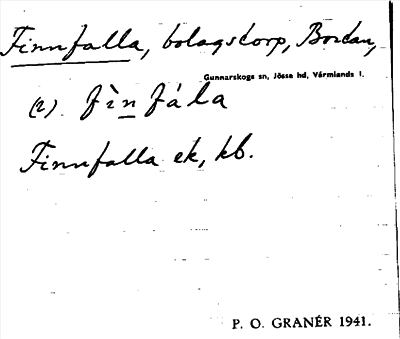 Finnfalla, bolagstorp, Bordan,
Gunnarskogs sn, Jösse hd, Värmlands l.
(2). fìnfála
Finnfalla ek, kb.
P. O. GRANÉR 1941.